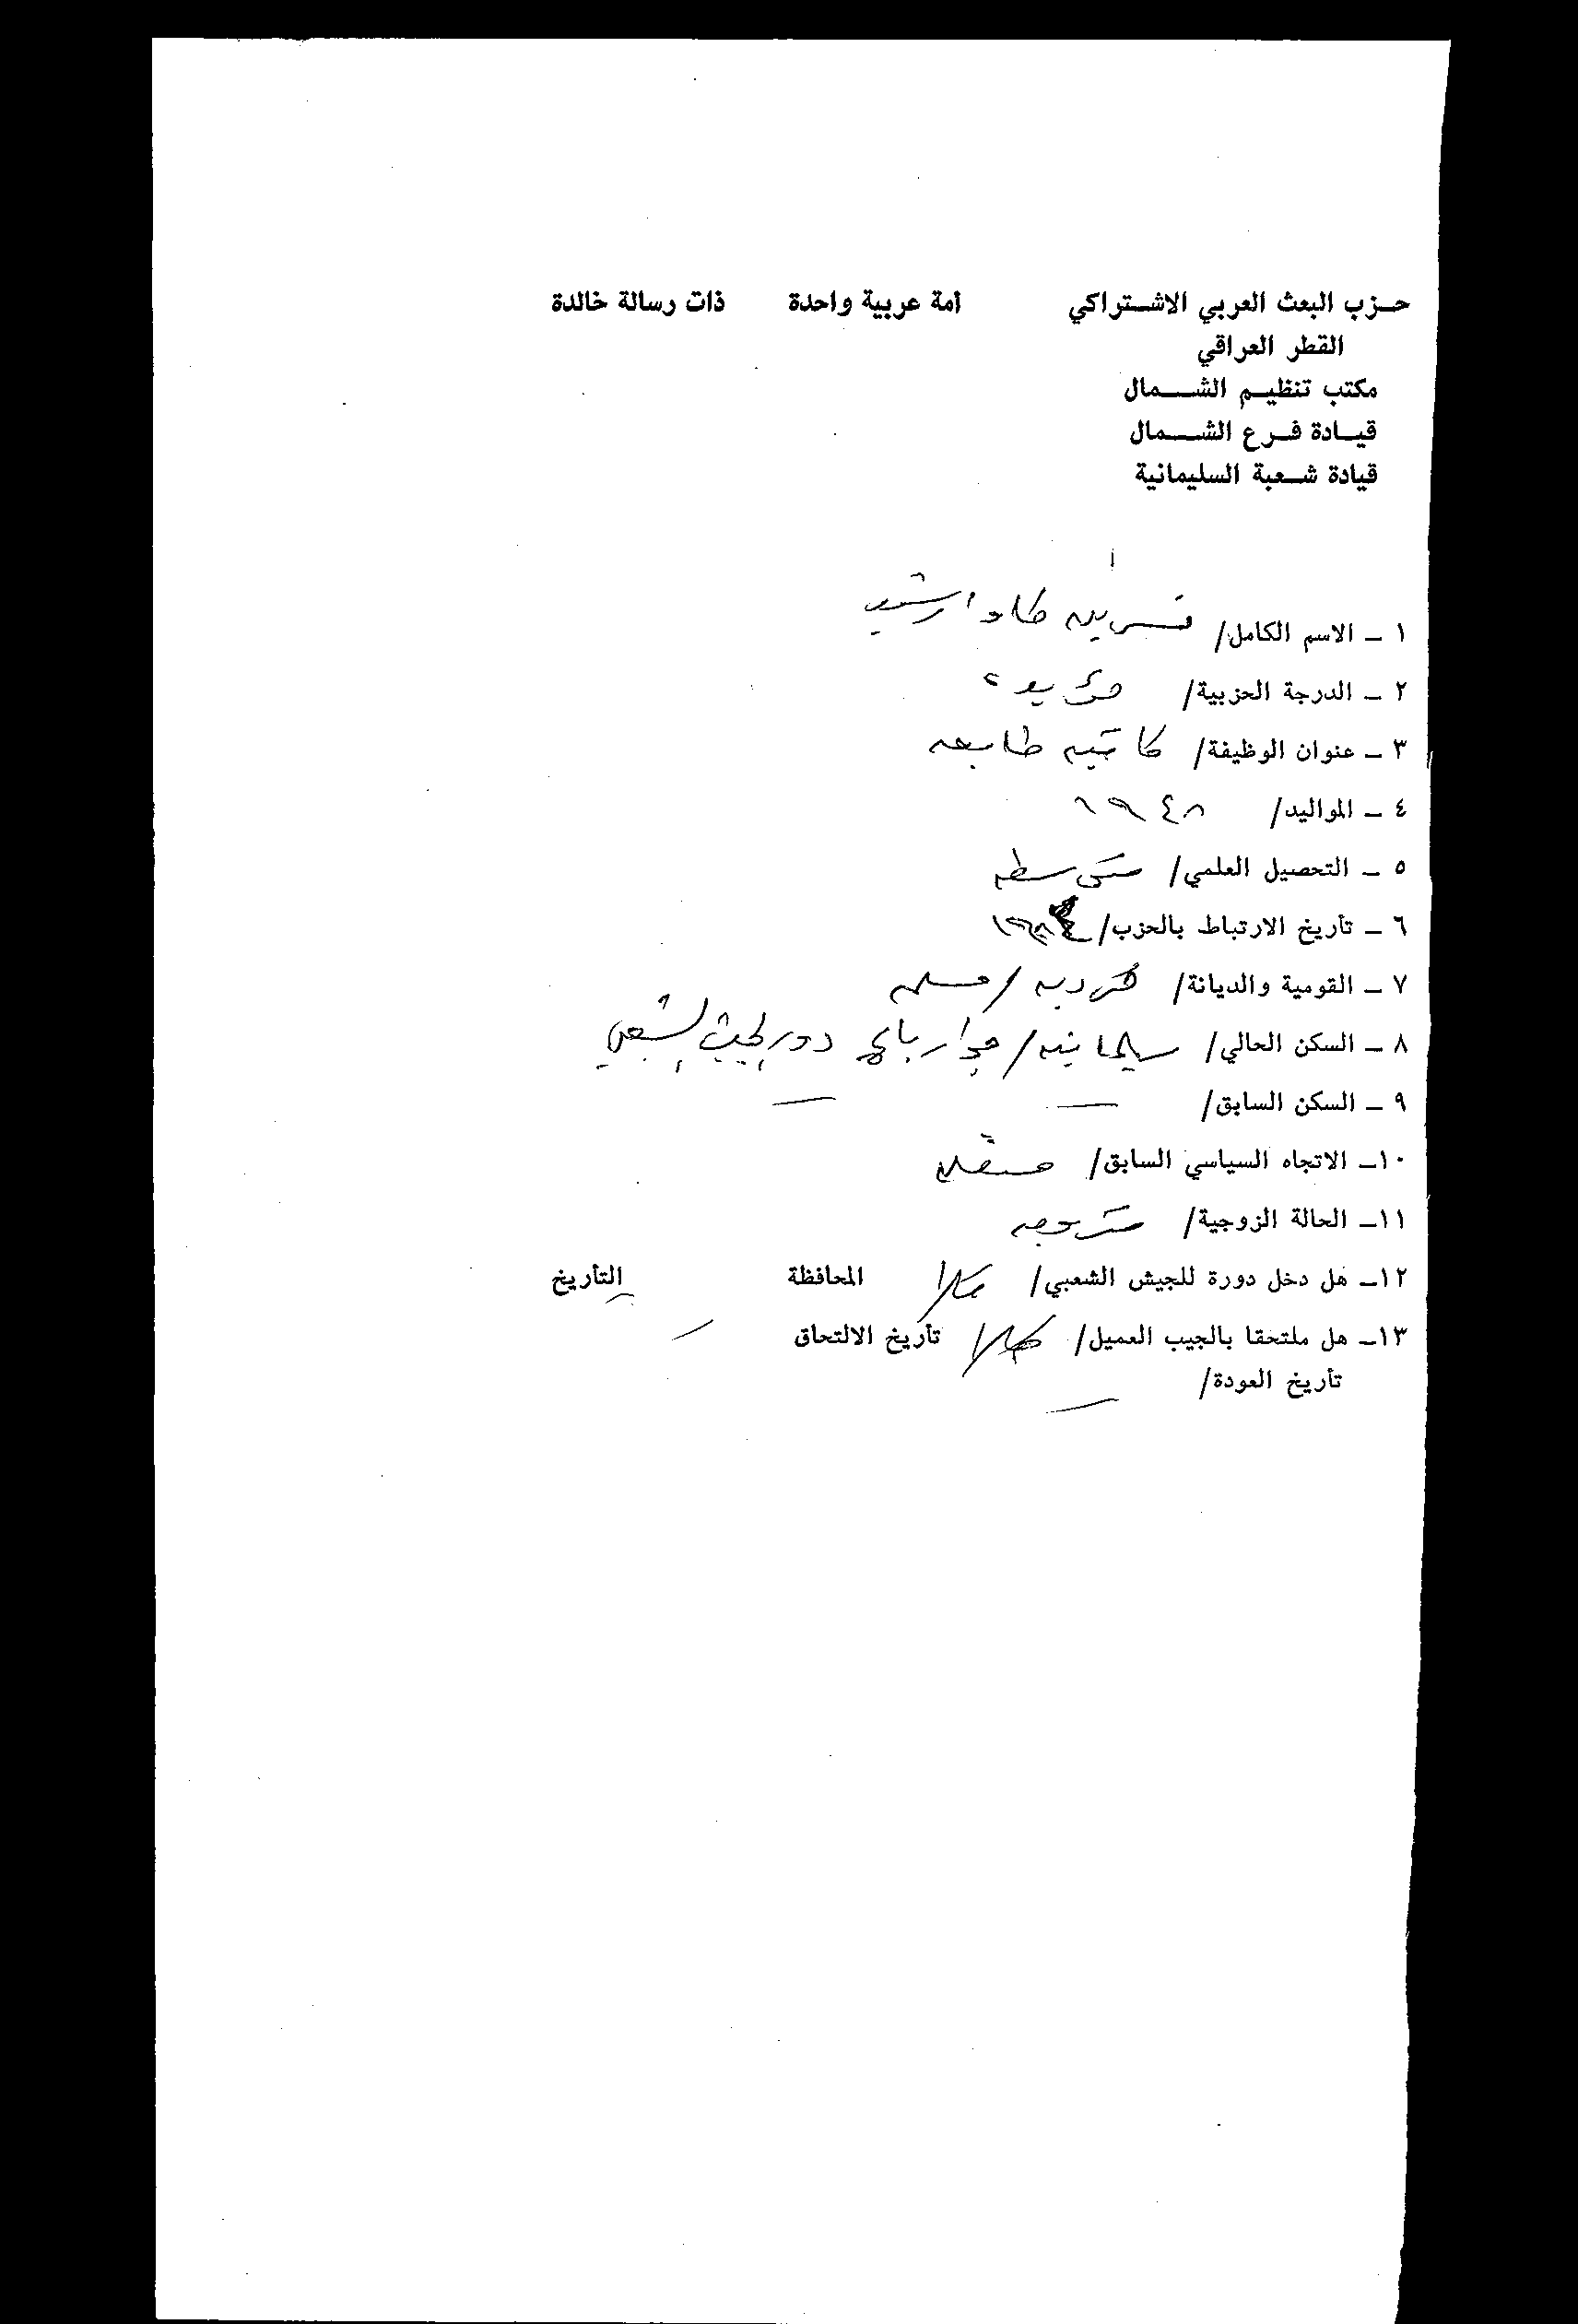 حزب البعث العربي الاشتراكي أمة عربية واحدة ذات رسالة خالدة
القطر العراقي
مكتب تنظيم الشمال
قيادة فرع الشمال
قيادة شعبة السليمانية
١ – الاسم الكامل/ نسرين طاو رشيد
٢ – الدرجة الحزبية/ مؤيدة
٣ – عنوان الوظيفة/ كاتبه طابعه
٤ – المواليد/ ١٩٤٨
٥ – التحصيل العلمي/ متوسطه
٦ – تأريخ الارتباط بالحزب/
٧ – القومية والديانة/ كرديه / مسلمه
٨ – السكن الحالي/ سليمانيه / دور الجيش الشعبي
٩ – السكن السابق/ — —
١٠– الاتجاه السياسي السابق/ مستقله
١١– الحالة الزوجية/ متزوجه
١٢– هل دخل دورة للجيش الشعبي/ كلا المحافظة التأريخ
١٣– هل ملتحقا بالجيب العميل/ كلا تأريخ الالتحاق —
تأريخ العودة/ —